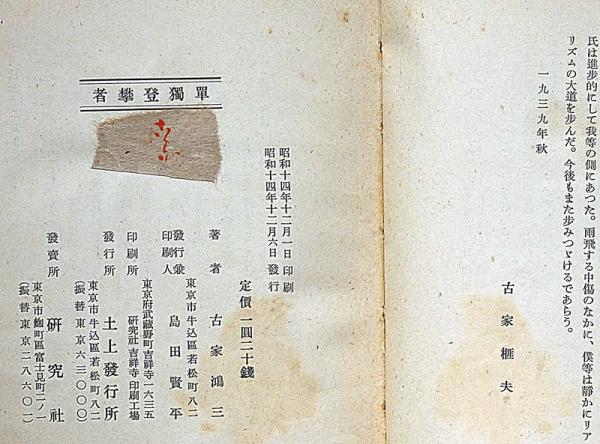 氏は進步的にして我等の側にあつた。雨飛する中傷のなかに、僕等は靜かにリア
リズムの大道を步んだ。今後もまた步みつゞけるであらう。
一九三九年秋
古家榧夫
單獨登攀者
昭和十四年十二月一日印刷
昭和十四年十二月六日發行
定價一圓二十錢
著者 古家鴻三
東京市牛込區若松町八二
發行兼印刷人 島田賢平
東京府武藏野町吉祥寺一六三五
印刷所 硏究社吉祥寺印刷工場
東京市牛込區若松町八二
發行所 土上發行所
(振替東京六三〇〇〇)
東京市麴町區富士見町二ノ一
發賣所 硏究社
(振替東京二八六〇一)